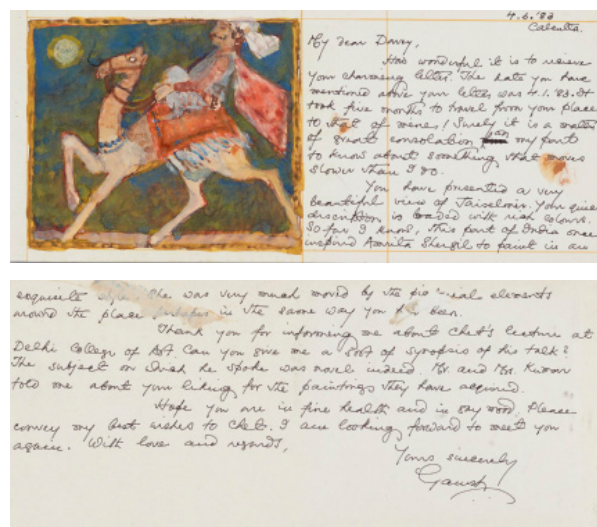 4.6.'83
Calcutta.
My dear Davy,
How wonderful it is to receive
your charming letter. The date you have
mentioned above your letter was 4.1.'83. It
took five months to travel from your place
to that of mine! Surely it is a matter
of great consolation on my part
to know about something that moves
slower than I do.
You have presented a very
beautiful view of Jaiselmir. Your
description is loaded with rich colours.
So far I know, this part of India once
inspired Amrita Shergil to paint in an
exquisite She was very much moved by the elements
around the place perhaps in the same way you been.
Thank you for informing me about Chet's lecture at
Delhi College of Art. Can you give me a sort of synopsis of his talk?
The subject on which he spoke was novel indeed. Mr. and Mrs. Kumar
told me about your liking for the paintings they have acquired.
Hope you are in fine health and in gay mood. Please
convey my best wishes to Chet. I am looking forward to meet you
again. With love and regards,
Yours sincerely